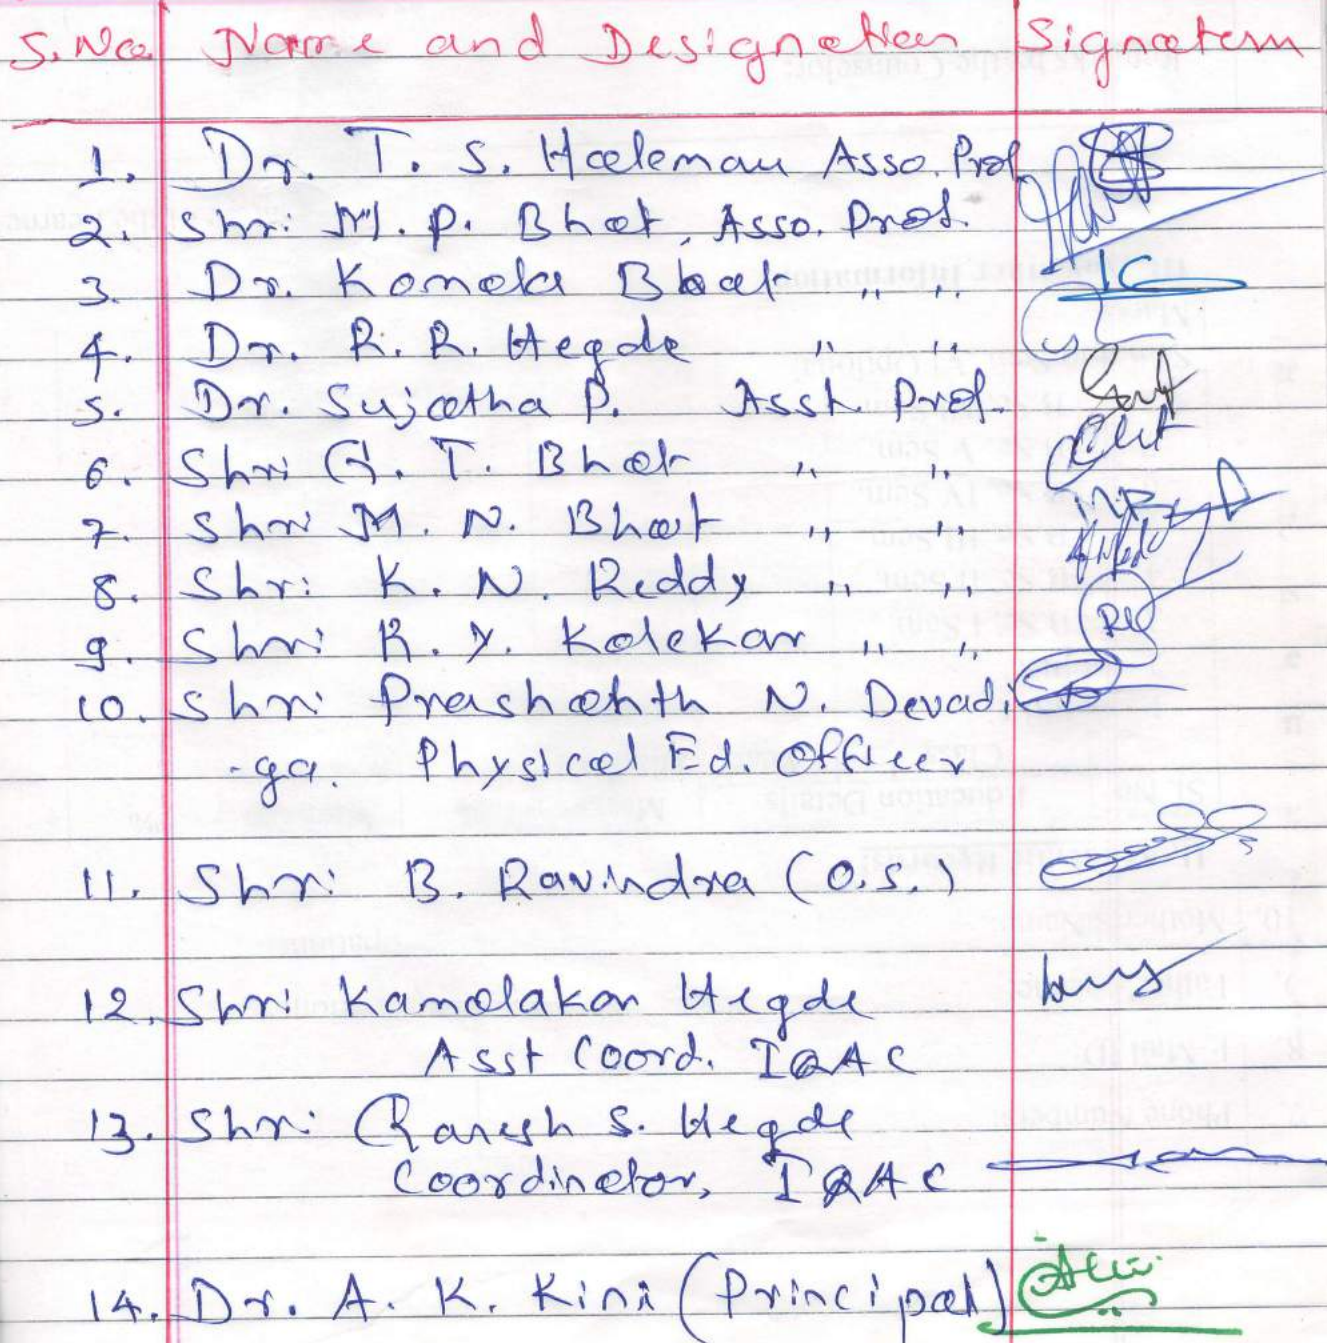 S.No. Name and Designation Signature
1. Dr. T. S. Haleman Asso. Prof
2. Shri M. P. Bhat, Asso. Prof.
3. Dr. Komala Bhat " "
4. Dr. R. R. Hegde " "
5. Dr. Sujatha P. Asst. Prof.
6. Shri G. T. Bhat " "
7. Shri M. N. Bhat " "
8. Shri K. N. Reddy " "
9. Shri R. Y. Kolekar " "
10. Shri Prashanth N. Devadi
-ga. Physical Ed. Officer
11. Shri B. Ravindra (O.S.)
12. Shri Kamalakar Hegde
Asst Coord. IQAC
13. Shri Ganesh S. Hegde
Coordinator, IQAC
14. Dr. A. K. Kini (Principal)